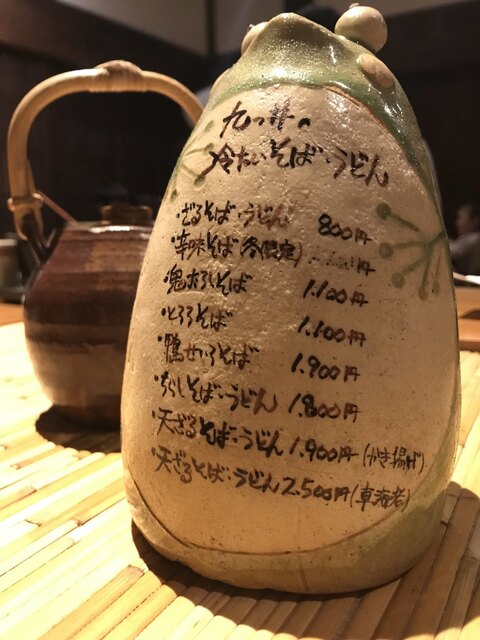 九つ井の
冷たいそば・うどん
・ざるそば・うどん 800円
・辛味そば(冬限定) 円
・鬼おろしそば 1.100円
・とろろそば 1.100円
・鴨せいろそば 1.900円
・ちらしそば・うどん 1.800円
・天ざるそば・うどん 1.900円(かき揚げ)
・天ざるそば・うどん 2.500円(車海老)